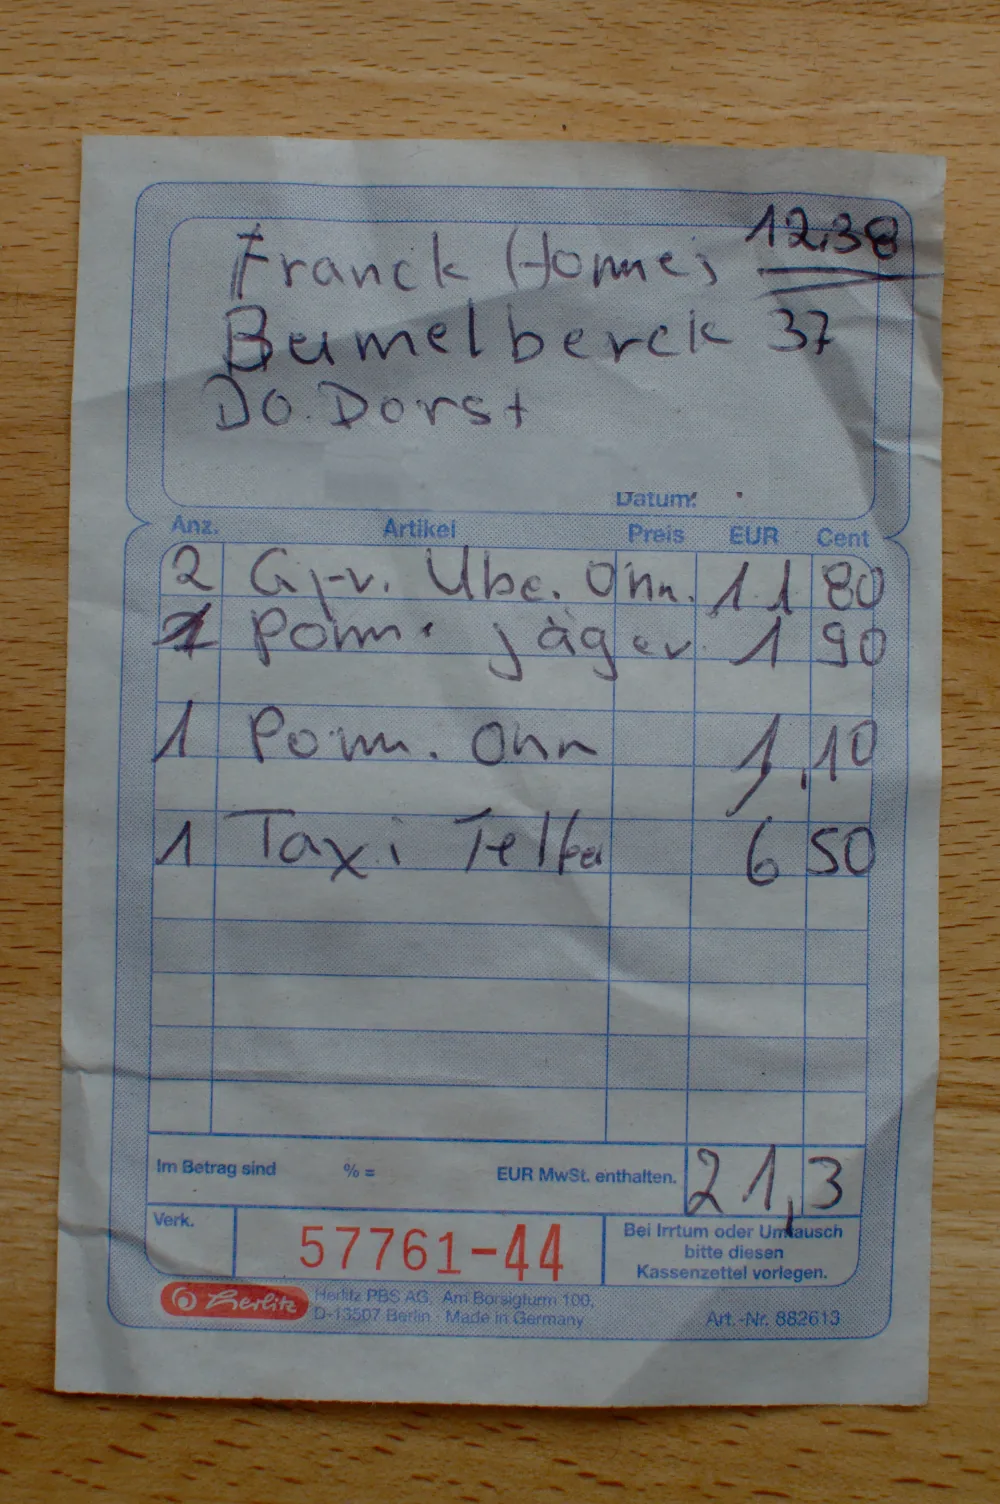 12.38
Franck Hommes
Bumelberck 37
Do. Dorst
Datum:
Anz. Artikel Preis EUR Cent
2 Gyr. Übe. Ohn. 11 80
1 Pomm. Jäger. 1 90
1 Pomm. Ohn 1,10
1 Taxi Teller 6 50
Im Betrag sind % = EUR MwSt. enthalten. 21,3
Verk.
57761-44
Bei Irrtum oder Umtausch
bitte diesen
Kassenzettel vorlegen.
Herlitz
Herlitz PBS AG, Am Borsigturm 100,
D-13507 Berlin · Made in Germany
Art.-Nr. 882613